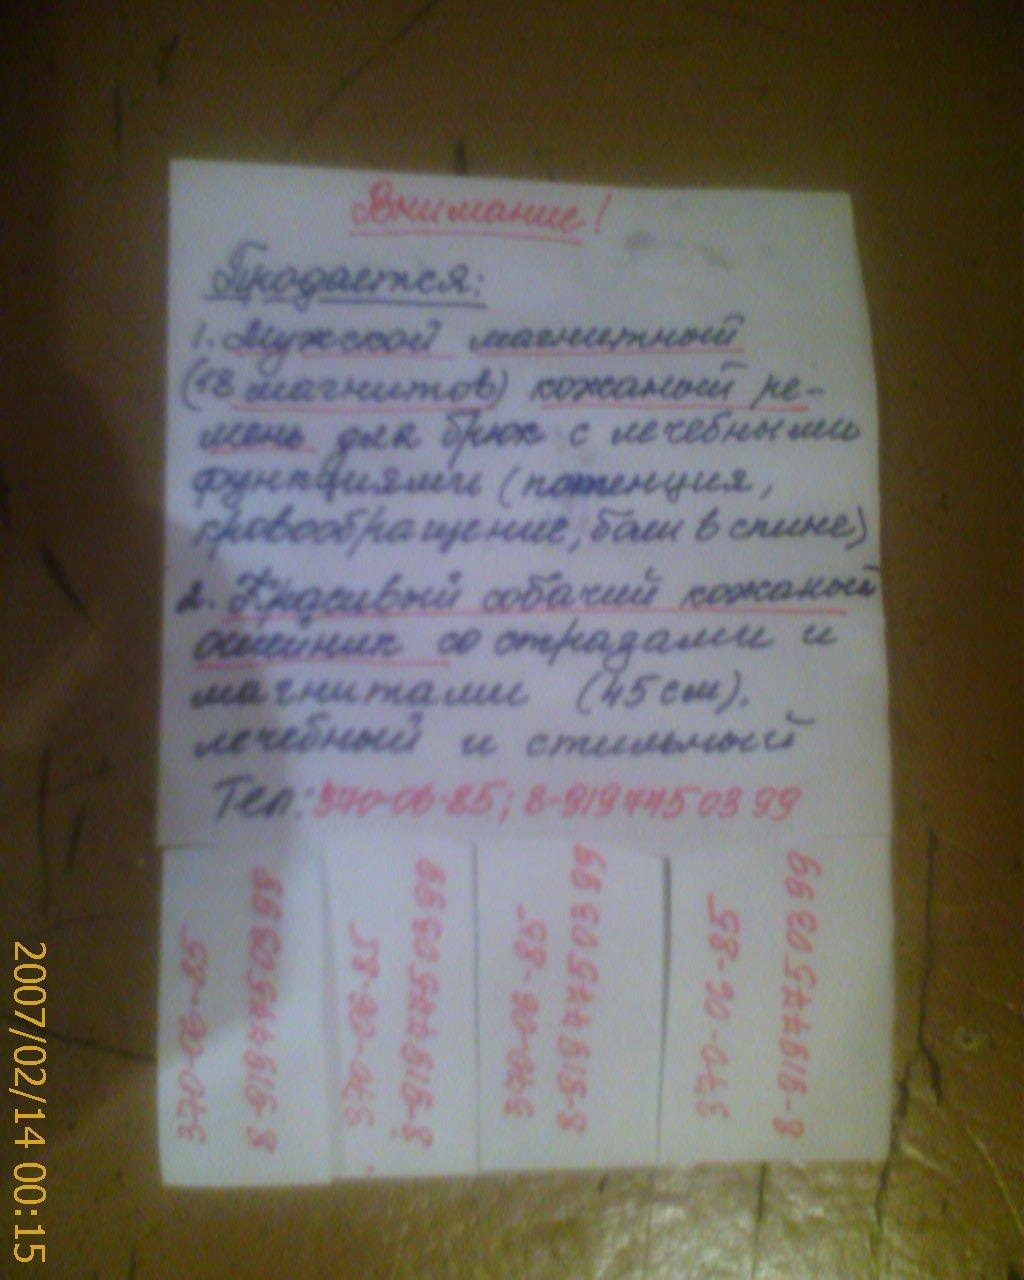 Внимание!
Продается:
1. Мужской магнитный
(18 магнитов) кожаный ре-
мень для брюк с лечебными
функциями (потенция,
кровообращение, боли в спине)
2. Красивый собачий кожаный
ошейник со стразами и
магнитами (45 см).
лечебный и стильный
Тел: 370-06-85; 8-919 775 03 99
370-06-85
8-919 775 03 99
370-06-85
8-919 775 03 99
370-06-85
8-919 775 03 99
370-06-85
8-919 775 03 99
2007/02/14 00:15